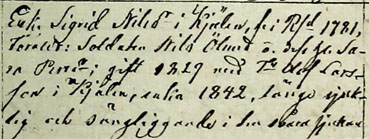 Enk. Sigrid Nilsdr i Kjälen, f. i Rfd 1781,
Föräldr: Soldaten Nils Ölund o. h. h. Sa-
ra Persdr; gift 1829 med Tn Olof Lars-
son i Kjälen, enka 1842, länge sjuk-
lig och sängliggande i